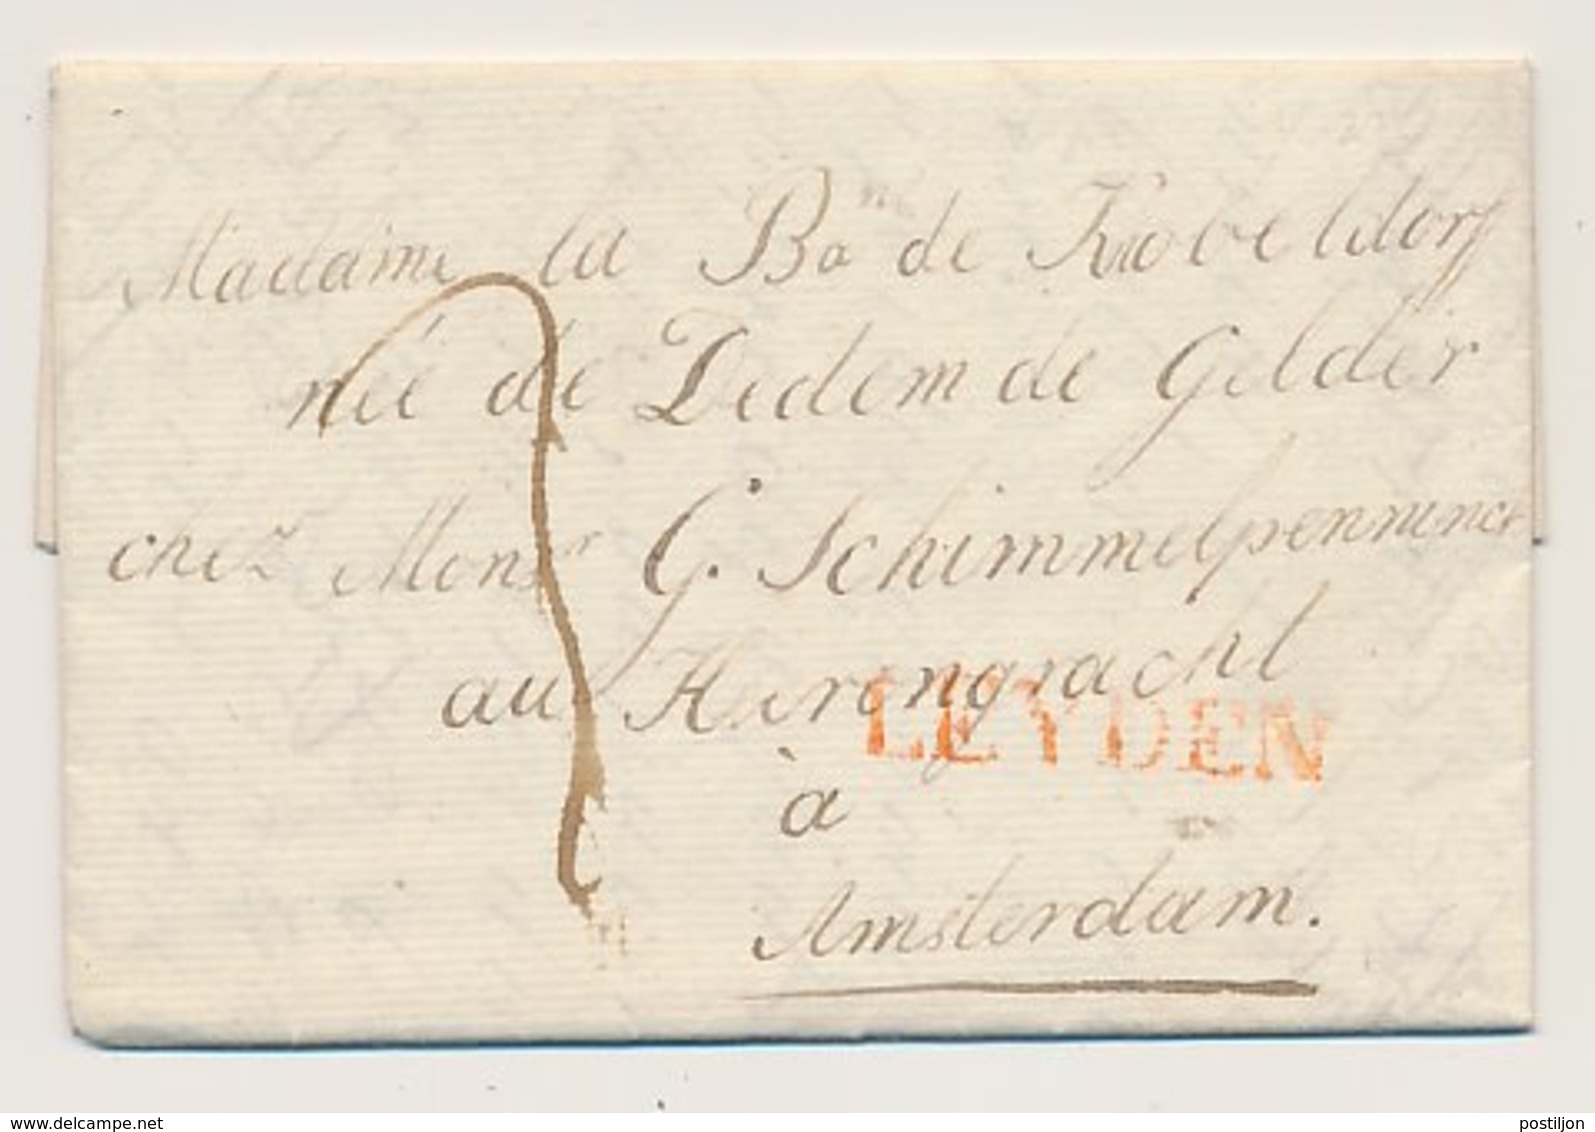 Madame la Bonne de Knobeldorff
née de Dedem de Gelder
chez Monsr G. Schimmelpenninck
au Herengracht
LEYDEN
à
Amsterdam.
www.delcampe.net
postiljon